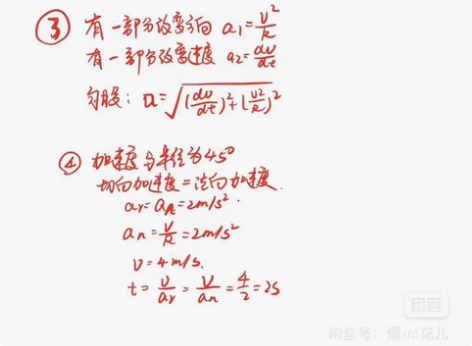 ③ 有一部分改变方向 a₁=v²/R
有一部分改变速度 a₂=dv/dt
勾股：a=√((dv/dt)²+(v²/R)²)
④ 加速度与半径为45°
切向加速度=法向加速度.
aτ=aₙ=2m/s².
an=v/R=2m/s²
v=4m/s.
t=v/aτ=v/an=4/2=2s
闲鱼
闲鱼号：爆mi花儿